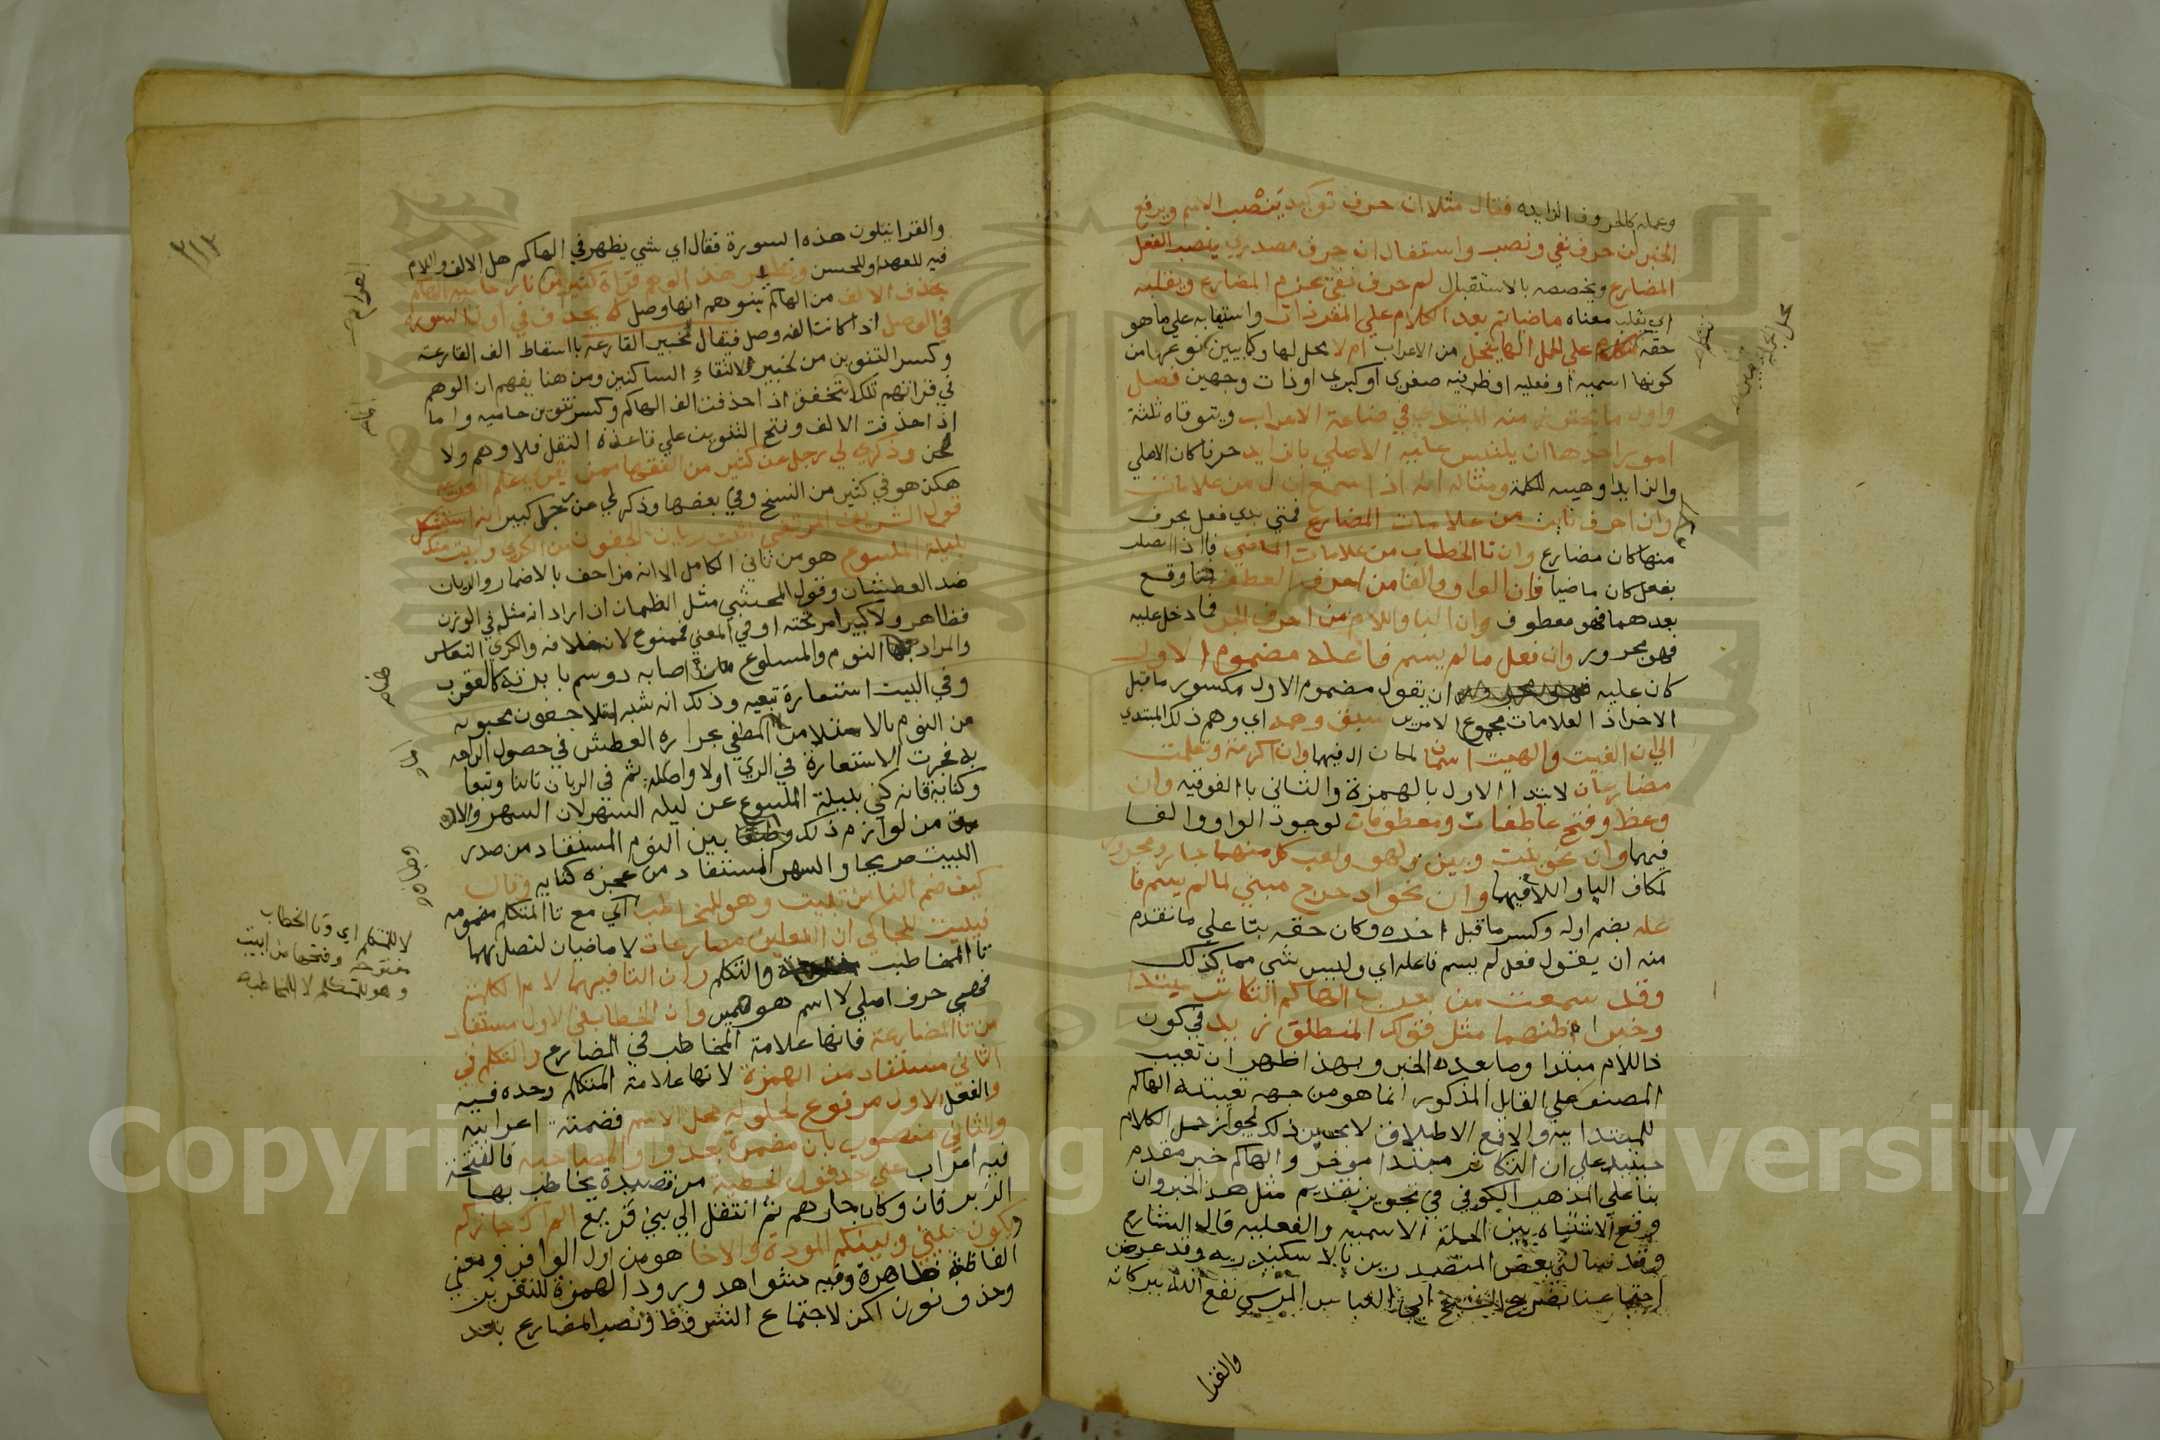 وعمله كالحروف الزايده فقال مثلا ان حرف توكيد ينصب الاسم ويرفع
الخبر لن حرف نفي ونصب واستقبال ان حرف مصدري ينصب الفعل
المضارع ويخصصه بالاستقبال لم حرف نفي يجزم المضارع ويقلبه
اي يقلب معناه ماضيا ثم بعد الكلام علي المفردات واستيفابه علي ما هو
حقه تكلم علي الجمل الها محل من الاعراب ام لا محل لها وكما يبين نوعها من
كونها اسميه او فعليه او ظرفيه صغري او كبري او ذات وجهين فصل
واول ما يحترز منه المبتدي في صناعة الاعراب ويتوقاه ثلثة
امور احدها ان يلتبس عليه الاصلي بالزايد حرفا كان الاصلي
والزايد او هيبه للكلمة ومثاله انه اذا سمع ان ال من علامات
وان احرف نايت من علامات المضارع فمتي بدي فعل بحرف
منها كان مضارع وان تا الخطاب من علامات الماضي فاذا اتصلت
بفعل كان ماضيا وان الواو والفا من احرف العطف فما وقع
بعدهما فهو معطوف وان البا واللام من احرف الجر فما دخل عليه
فهو مجرور وان فعل ما لم يسم فاعله مضموم الاول
كان عليه ان يقول مضموم الاول مكسور ما قبل
الاخر اذ العلامات مجموع الامرين سبق وهمه اي وهم ذلك المبتدي
الي ان الفيت والهيت اسمان لمكان ال فيهما وان اكرمت وتعلمت
مضارعان لابتدا الاول بالهمزة والثاني بالفوقيه وان
وعظ وفتح عاطفات ومعطوفات لوجود الواو والفا
فيهما وان نحو بيت وبين ولهو ولعب كل منهما جار ومجرور
لمكان البا واللام فيها وان نحو ادحرج مبني لما لم يسم فا
عله بضم اوله وكسر ما قبل اخره وكان حقه بنا علي ما تقدم
منه ان يقول فعل لم يسم فاعله اي وليس شي مما كذلك
وقد سمعت من يعرب الهاكم التكاثر مبتدا
وخبرا ظنهما مثل قولك المنطلق زيد في كون
ذا اللام مبتدا وما بعده الخبر وبهذا ظهر ان تعييب
المصنف علي القايل المذكور انما هو من جهه تعيينه الهاكم
للمبتدا بيه والافع الاطلاق لا يحسن ذلك لجواز حمل الكلام
حينيد علي ان التكاثر مبتدا موخر والهاكم خبر مقدم
بنا علي المذهب الكوفي في تجويز تقديم مثل هذا الخبر وان
وقع الاشتباه بين الجملة الاسميه والفعليه قال الشارح
وقد سالني بعض المتصدرين بالاسكندريه وقد عرض
اجتماعنا بضريح الشيخ ابي العباس المرسي نفع الله ببركاته
والقرا
والقرا يتلون هذه السورة فقال اي شي يظهر في الهاكم هل الالف واللام
فيه للعهد او للجنس ونظير هذا الوهم قراة كثير من نار حاميه الهاكم
بحذف الالف من الهاكم بتوهم انها وصل كما تحذف في اول السورة
في الوصل اذا كانت الفه وصل فيقال لخبير القارعه باسقاط الف القارعة
وكسر التنوين من لخبير لالتقاء الساكنين ومن هنا يفهم ان الوهم
في قراتهم تلك يتحقق اذا حذفت الف الهاكم وكسر تنوين حاميه واما
اذا حذفت الالف وفتح التنوين علي قاعدة النقل فلا وهم ولا
لحن وذكر لي رجل عن كثير من الفقها ممن يقري علم العربيه
هكذا هو في كثير من النسخ وفي بعضها وذكر لي عن رجل كبير انه استشكل
قول الشريف المرتضي اتبيت ريان الجفون من الكري وابيت منك
بليلة الملسوع هو من ثاني الكامل الا انه مزاحف بالاضمار والريان
ضد العطشان وقول المحشي مثل الظمان ان اراد انه مثله في الوزن
فظاهر ولا كبير امر تحته او في المعني فممنوع لانه خلافه والكري النعاس
والمراد به النوم والملسوع من اصابه ذو سم بابرته كالعقرب
وفي البيت استعارة تبعيه وذلك انه شبه امتلا جفون محبوبه
من النوم بالامتلا من الما المطفي بحرارة العطش في حصول الراحه
به فجرت الاستعارة في الري اولا واصلا ثم في الريان ثانيا وتبعا
وكناية فانه كني بليلة الملسوع عن ليله السهر لان السهر والارق
من لوازم ذلك وطباقا بين النوم المستفاد من صدر
البيت صريحا والسهر المستفاد من عجزه كنايه وقال
كيف ضم التا من تبيت وهو للمخاطب اي مع تا المتكلم مضمومه
وابيت للحاكي ان الفعلين مضارعان لا ماضيان لتصل بهما
تا المخاطب والتكلم وان التا فيهما لام الكلمه
فهي حرف اصلي لا اسم هو ضمير وان الخطاب في الاول مستفاد
من تا المضارعة فانها علامة المخاطب في المضارع والتكلم في
الثاني مستفاد من الهمزة لانها علامة المتكلم وحده فيه
والفعل الاول مرفوع لحلوله محل الاسم فضمته اعرابيه
والثاني منصوب بان مضمرة بعد واو المصاحبه فالفتحة
فيه اعراب علي حد قول الحطية من قصيدة يخاطب بها
الزبرقان وكان جارهم ثم انتقل الي بني قريع الم اك جاركم
ويكون بيني وبينكم المودة والاخا هو من اول الوافر ومعني
الفاظه ظاهرة وفيه شواهد ورود الهمزة للتقرير
وحذف نون اكن لاجتماع الشروط ونصب المضارع بعد
لا للمتكلم اي وتا الخطاب
مفتوحه وفتحها من ابيت
وهو للمتكلم لا للمخاطب
Copyright © King Saud University